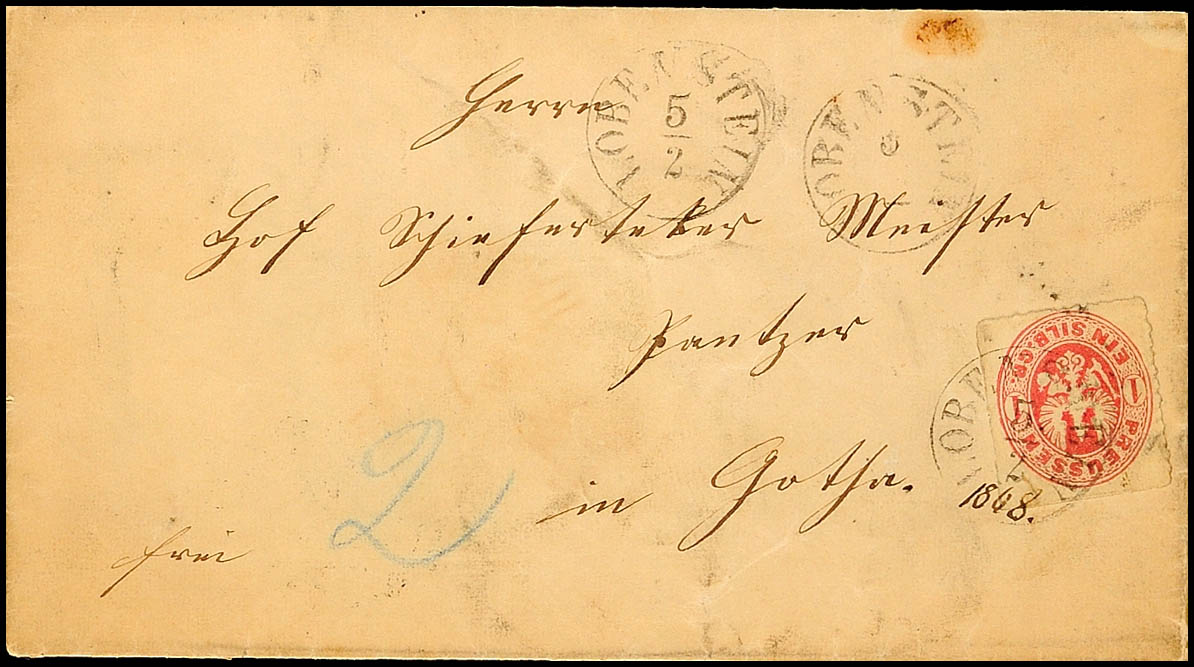 Herrn
LOBENSTEIN
5
2
LOBENSTEIN
Hof Schieferteker Meister
Pantzer
EIN SILB. GR.
1 PREUSSEN 1
LOBE
5
in Gotha.
1868.
2
frei